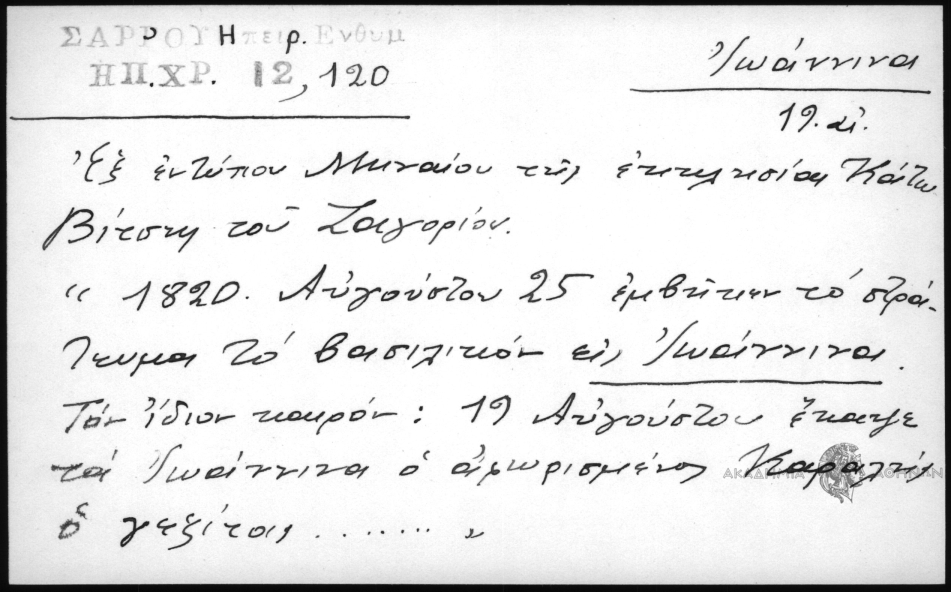 ΣΑΡΡΟΥ Ηπειρ. Ενθυμ
ΗΠ.ΧΡ. 12, 120
Ἰωάννινα
19. αἰ.
Ἐξ ἐντύπου Μηναίου τῆς ἐκκλησίας Κάτω
Βίτσης τοῦ Ζαγορίου.
“ 1820. Αὐγούστου 25 ἐμβῆκεν τό στρά-
τευμα τό βασιλικόν εἰς Ἰωάννινα.
Τόν ἴδιον καιρόν: 19 Αὐγούστου ἔκαψε
τά Ἰωάννινα ὁ ἀφωρισμένος
ὁ ........ „
ΑΚΑΔΗΜΙΑ ΑΘΗΝΩΝ